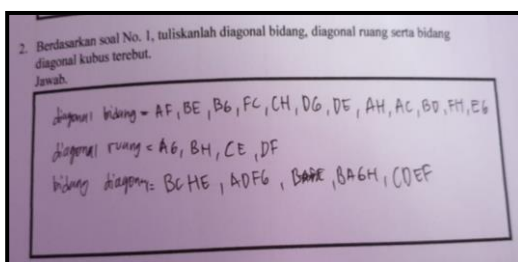 2. Berdasarkan soal No. 1, tuliskanlah diagonal bidang, diagonal ruang serta bidang
diagonal kubus terebut.
Jawab.
diagonal bidang = AF, BE, BG, FC, CH, DG, DE, AH, AC, BD, FH, EG
diagonal ruang = AG, BH, CE, DF
bidang diagonal = BCHE, ADFG, BAGH, CDEF